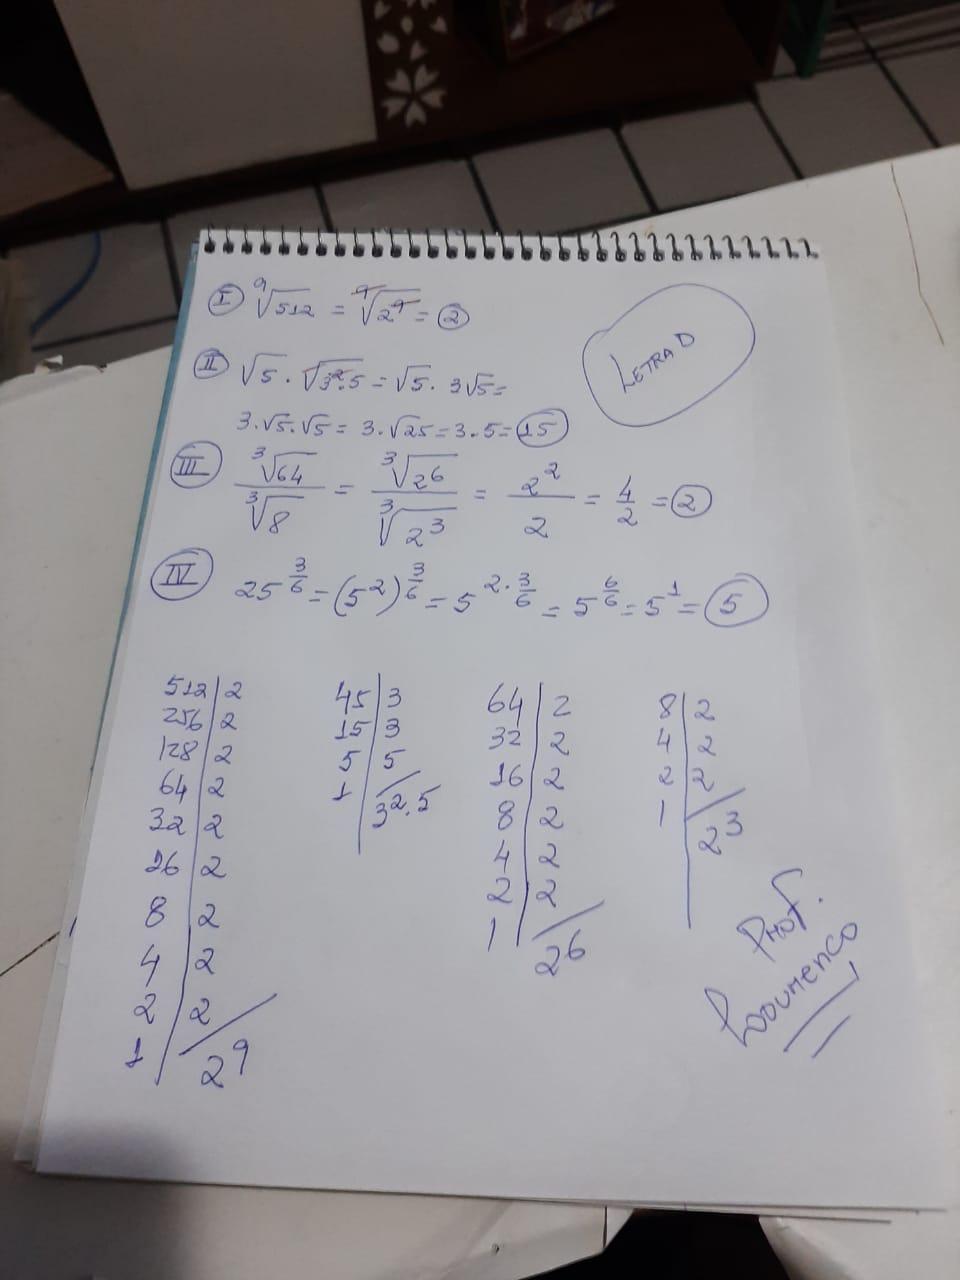 I ⁹√512 = ⁹√2⁹ = 2
II √5 . √3².5 = √5 . 3√5 =
3.√5.√5 = 3.√25 = 3.5 = 15
III ³√64 / ³√8 = ³√2⁶ / ³√2³ = 2² / 2 = 4/2 = 2
IV 25^3/6 = (5²)^3/6 = 5^2.3/6 = 5^6/6 = 5¹ = 5
LETRA D
512 | 2
256 | 2
128 | 2
64 | 2
32 | 2
16 | 2
8 | 2
4 | 2
2 | 2
1 | 2⁹
45 | 3
15 | 3
5 | 5
1 | 3².5
64 | 2
32 | 2
16 | 2
8 | 2
4 | 2
2 | 2
1 | 2⁶
8 | 2
4 | 2
2 | 2
1 | 2³
Prof.